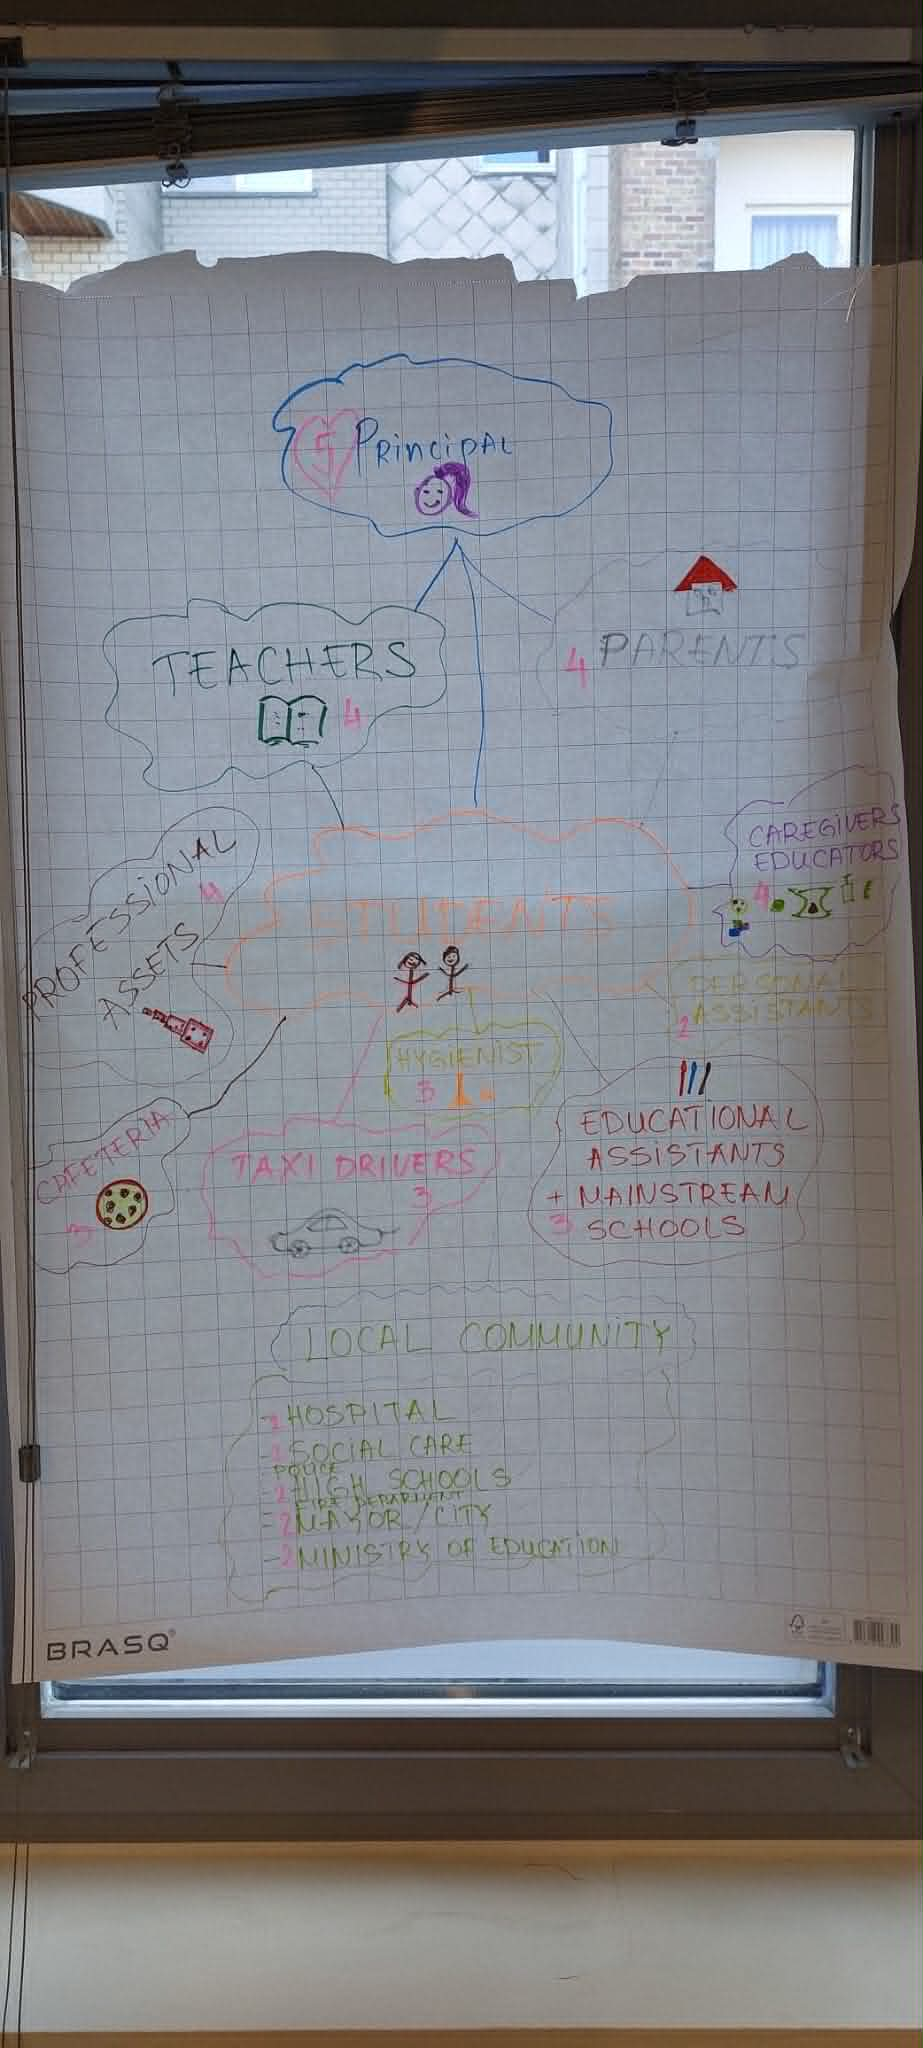 5 PRINCIPAL
TEACHERS
4
4 PARENTS
PROFESSIONAL
4
ASSETS
STUDENTS
CAREGIVERS
EDUCATORS
4
PERSONAL
2 ASSISTANTS
HYGIENIST
3
CAFETERIA
3
TAXI DRIVERS
3
EDUCATIONAL
ASSISTANTS
+ MAINSTREAM
3 SCHOOLS
LOCAL COMMUNITY
HOSPITAL
SOCIAL CARE
POLICE
-2 HIGH SCHOOLS
FIRE DEPARTMENT
-2 MAYOR/CITY
-2 MINISTRY OF EDUCATION
BRASQ®